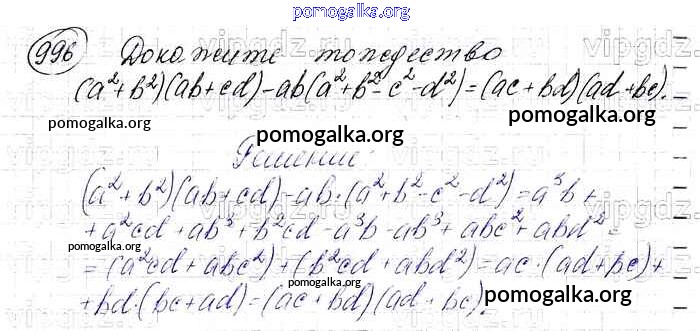 pomogalka.org
996 Докажите тождество
(a²+b²)(ab+cd)-ab(a²+b²-c²-d²)=(ac+bd)(ad+bc).
pomogalka.org
pomogalka.org
Решение:
(a²+b²)(ab+cd)-ab·(a²+b²-c²-d²)=a³b+
+a²cd+ab³+b²cd-a³b-ab³+abc²+abd²=
pomogalka.org
=(a²cd+abc²)+(b²cd+abd²)=ac·(ad+bc)+
+bd·(bc+ad)=(ac+bd)(ad+bc).
pomogalka.org
pomogalka.org
vipgdz